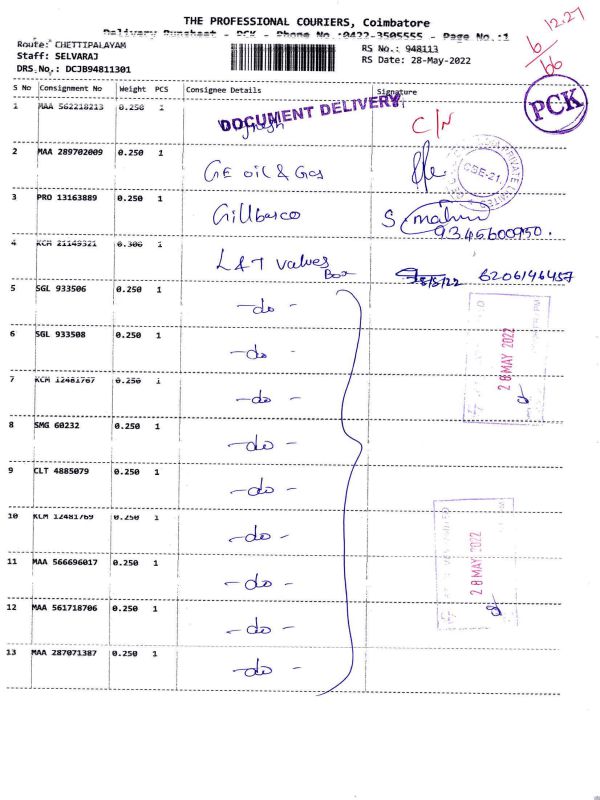 THE PROFESSIONAL COURIERS, Coimbatore
Delivery Runsheet - PCK - Phone No.:0422-3505555 - Page No.:1
12.27
Route: CHETTIPALAYAM
RS No.: 948113
Staff: SELVARAJ
RS Date: 28-May-2022
DRS.No.: DCJB94811301
6
66
S No Consignment No Weight PCS Consignee Details Signature
PCK
1 MAA 562218213 0.250 1 C/N
DOCUMENT DELIVERY
2 MAA 289702009 0.250 1 GE oil & Gas
CBE-21.
PRIVATE LIMITED
3 PRO 13163889 0.250 1 Gillbarco
9345600950.
4 KCM 21149321 0.306 1 L&T valves 6206146457
Box
5 SGL 933506 0.250 1 -do-
6 SGL 933508 0.250 1 -do-
28 MAY 2022
7 KCM 12481767 0.250 1 -do-
8 SMG 60232 0.250 1 -do-
9 CLT 4885079 0.250 1 -do-
10 KCM 12481769 0.250 1 -do-
28 MAY 2022
11 MAA 566696017 0.250 1 -do-
12 MAA 561718706 0.250 1 -do-
13 MAA 287071387 0.250 1 -do-